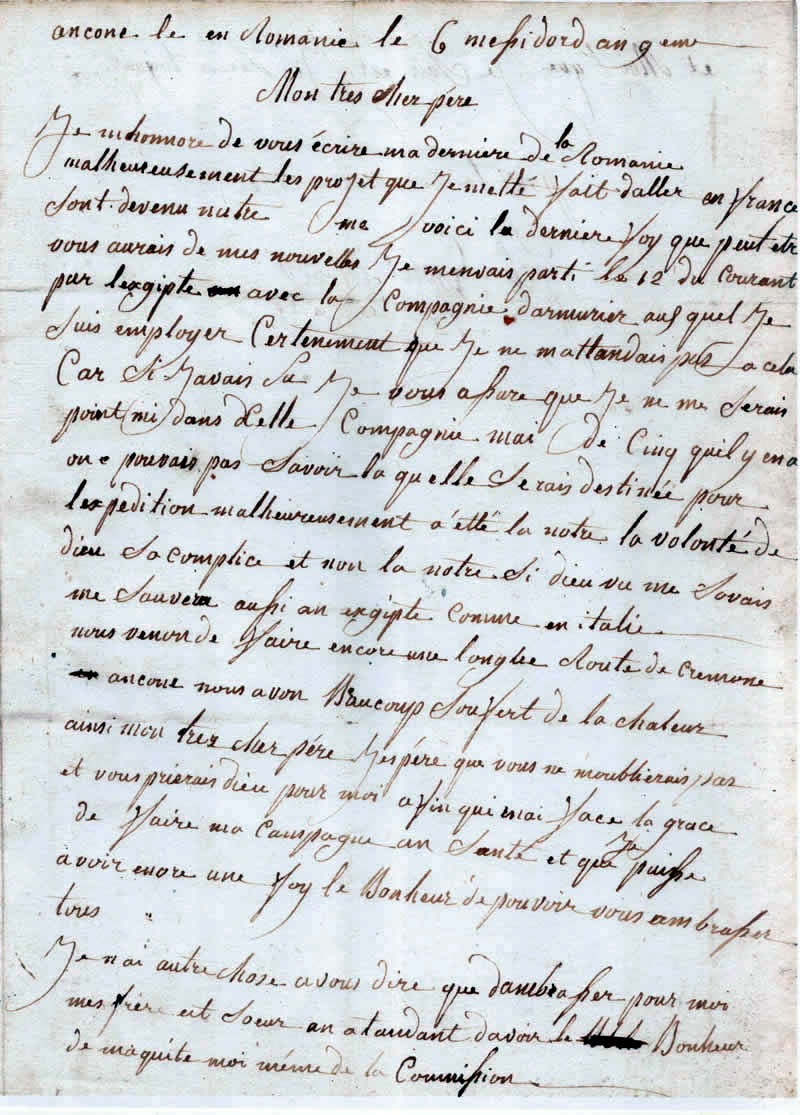 ancone le en Romanie le 6 messidord an 9 eme
Mon tres cher pére
Je mhonnore de vous écrire ma derniere de la Romanie
malheureusement les projet que Je metté fait daller en france
sont devenu nutre me voici la derniere foy que peut etr
vous aurais de mes nouvelles Je menvais parti le 12 du Courant
pur lexgipte avec la Compagnie darmurier auquel Je
suis employer Certenement que Je ne mattandais pas a cela
Car Si Javais Su Je vous assure que Je ne me Serais
point mi dans Celle Compagnie mai de Cinq quil y en a
on e pouvais pas Savoir la quelle Serais destinée pour
lexpedition malheureusement a étté la notre la volonté de
dieu Sacomplice et non la notre Si dieu vu me Savais
me Sauvera aussi an exgipte comme en italie
nous venon de faire encore une longue Route de Cremone
ancone nous avon Beaucoup Soufert de la chaleur
ainsi mon trez cher pére Jespére que vous ne moublierais pas
et vous prierais dieu pour moi afin qui mai face la grace
de faire ma Campagne an Santé et que Je puisse
avoir encre une foy le Bonheur de pouvoir vous ambrasser
tous
Je nai autre chose a vous dire que dambrasser pour moi
mes frére est Soeur an atandant davoir le Bonheur
de maquite moi méme de la Commission